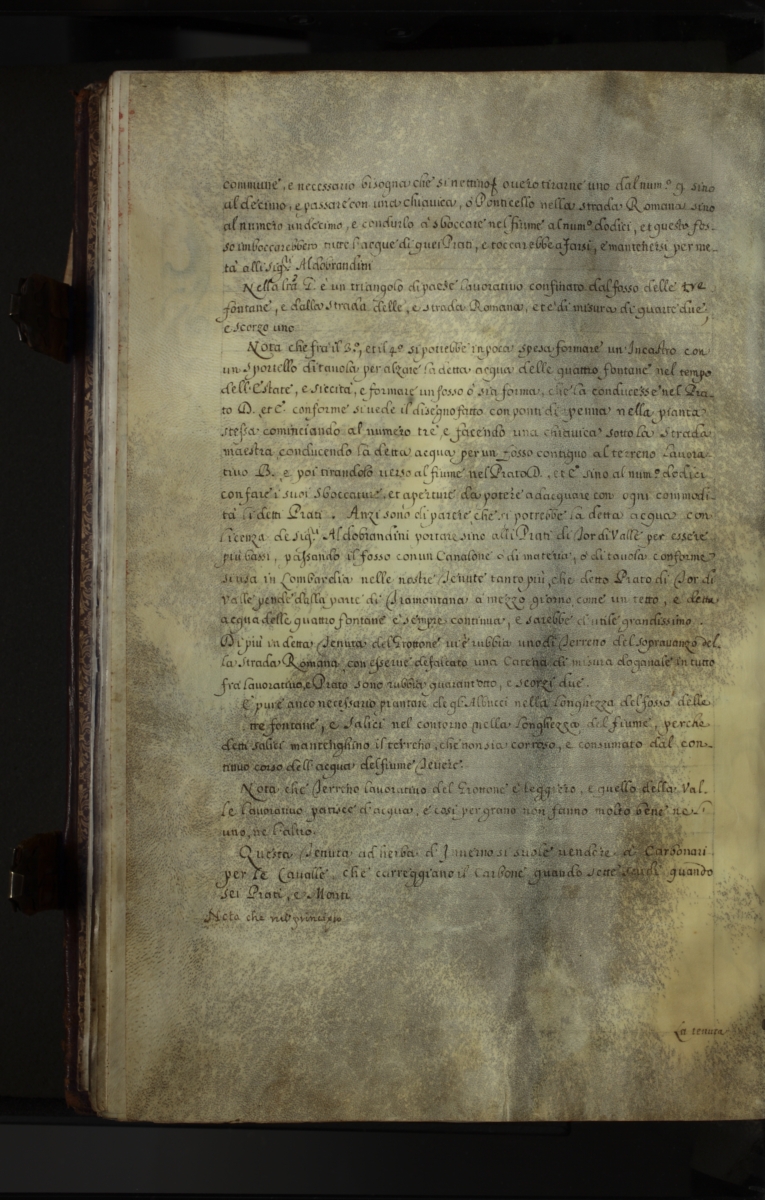 commune, e necessario bisogna che si nettino, overo tirarne uno dal num.º 9 sino
al decimo, e passare con una chiavica, ò Ponticello nella strada Romana sino
al numero undecimo, e condurlo à sboccare nel fiume al num.º dodici, et questo fos-
so imboccarebbero tutte l'acque di quei Prati, e toccarebbe a farsi, e mantenersi per me-
tà alli Sig.ri Aldobrandini
Nella lra è un triangolo di paese lavorativo confinato dal fosso delle tre
fontane, e dalla strada delle, e strada Romana, et è di misura di quarte due,
e scorzo uno
Nota che fra il 3.º, et il 4.º si potrebbe in poca spesa formare un Incastro con
un sportello di tavola per alzare la detta acqua delle quattro fontane nel tempo
dell'Estate, e siccità, e formare un fosso ò sia forma, che la conducesse nel Pra-
to D. et C. conforme si vede il disegno fatto con ponti di penna nella pianta
stessa cominciando al numero tre e facendo una chiavica sotto la strada
maestra conducendo la detta acqua per un fosso contiguo al terreno lavora-
tivo B. e poi tirandolo verso al fiume nel Prato D. et C. sino al num.º dodici
con fare i suoi sboccature, et aperture da potere adacquare con ogni commodi-
tà li detti Prati. Anzi sono di parere che si potrebbe la detta acqua con
licenza de sig.ri Aldobrandini portare sino alli Prati di Tor di Valle per essere
più bassi, passando il fosso con un Canalone ò di materia, ò di tavola conforme
si usa in Lombardia nelle nostre Tenute tanto più, che detto Prato di Tor di
Valle pende dalla parte di Tramontana a mezzo giorno come un tetto, e detta
acqua delle quattro fontane è sempre continua, e sarebbe d'utile grandissimo.
Di più in detta Tenuta del Grottone vi è rubbia uno di Terreno del sopravanzo del-
la strada Romana, con esserne defalcato una Catena di misura doganale in tutto
fra lavorativo, e Prato sono rubbia quarant'otto, e scorzi due.
E' pure anco necessario piantare de gl'Albucci nella longhezza del fosso delle
tre fontane, e Salici nel contorno nella longhezza del fiume, perche
detti salici mantenghino il terreno, che non sia corroso, e consumato dal con-
tinuo corso dell'acqua del fiume Tevere.
Nota che Terreno lavorativo del Grottone è leggiero, e quello della Val-
le lavorativo patisce d'acqua, e così per grano non fanno molto bene ne l'
uno, ne l'altro.
Questa Tenuta ad herba d'Inverno si suole vendere à Carbonari
per le Cavalle, che carreggiano il Carbone quando sette scudi quando
sei Prati, e Monti
Nota che nel principio
La tenuta